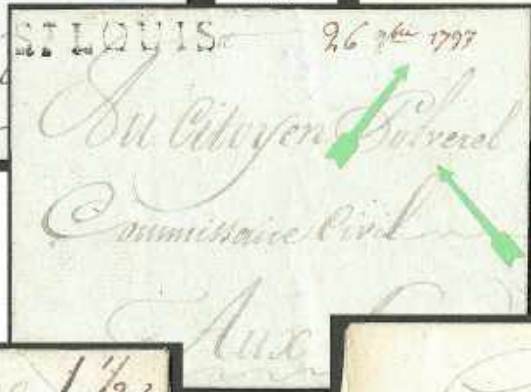 ST LOUIS
26 7bre 1793
Au Citoyen Polverel
Commissaire Civil
Aux